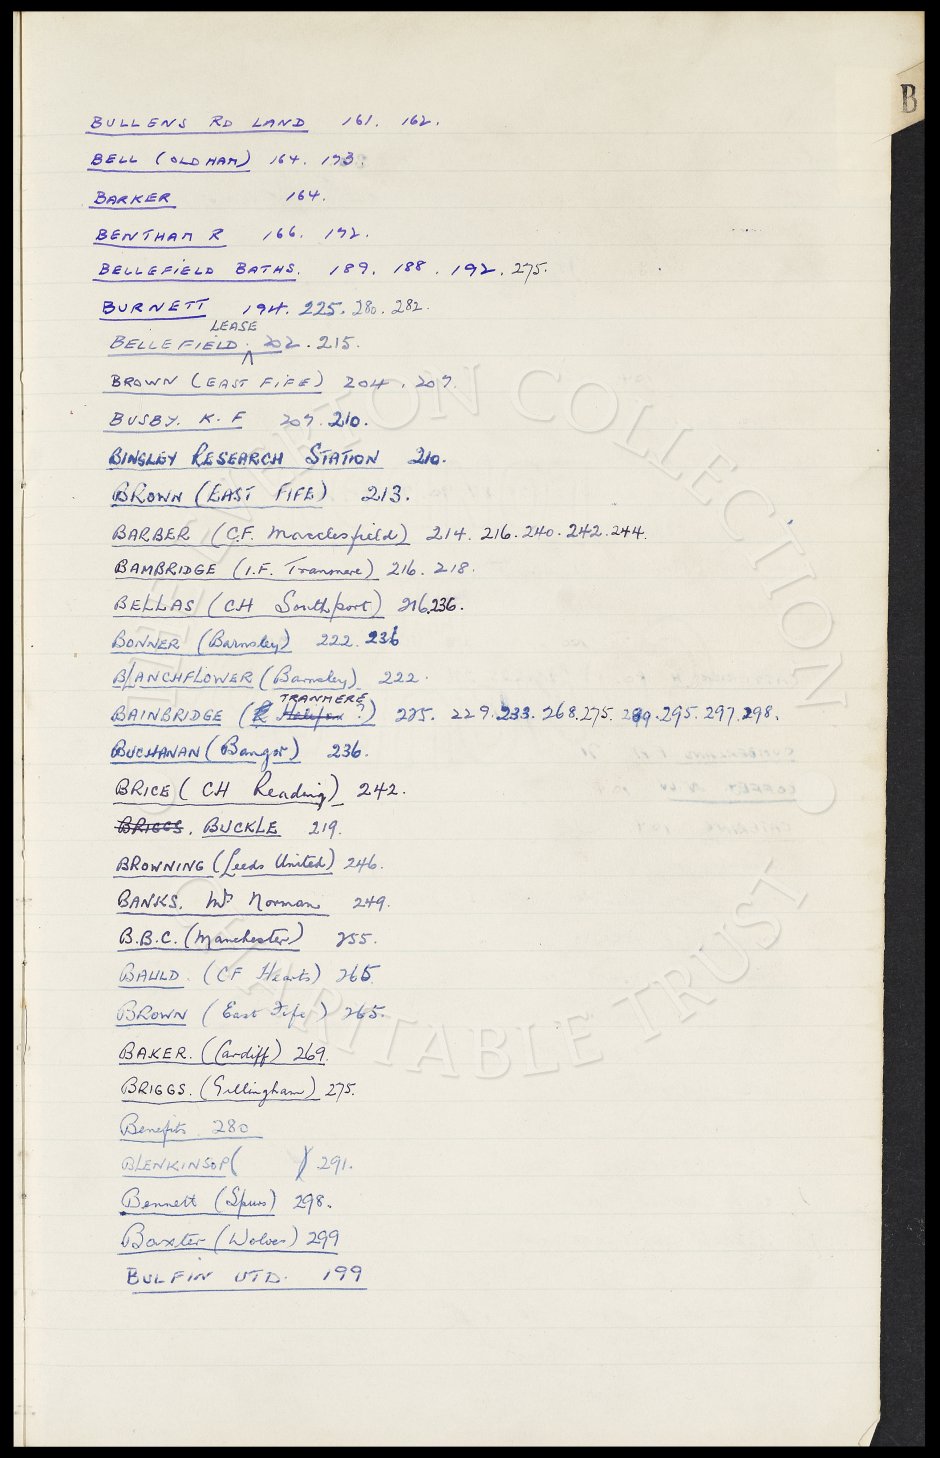 B
BULLENS RD LAND 161. 162.
BELL (OLDHAM) 164. 173.
BARKER 164.
BENTHAM R 166. 172.
BELLEFIELD BATHS. 189. 188. 192. 275.
BURNETT 194. 225. 280. 282.
LEASE
BELLEFIELD. 202. 215.
BROWN (EAST FIFE) 204. 207.
BUSBY. K. F 207. 210.
BINGLEY RESEARCH STATION 210.
BROWN (EAST FIFE) 213.
BARBER (C.F. Macclesfield) 214. 216. 240. 242. 244.
BAMBRIDGE (I.F. Tranmere) 216. 218.
BELLAS (CH Southport) 216. 236.
BONNER (Barnsley) 222. 236
BLANCHFLOWER (Barnsley) 222.
TRANMERE
BAINBRIDGE (Halifax ?) 225. 229. 233. 268. 275. 295. 297. 298.
BUCHANAN (Bangor) 236.
BRICE (CH Reading) 242.
BRIGGS. BUCKLE 219.
BROWNING (Leeds United) 246.
BANKS. Mr Norman 249.
B.B.C. (Manchester) 255.
BAULD. (CF Hearts) 265
BROWN (East Fife) 265.
BAKER. (Cardiff) 269.
BRIGGS. (Gillingham) 275.
Benefits 280
BLENKINSOP ( ) 291.
Bennett (Spurs) 298.
Baxter (Wolves) 299
BULFIN UTD. 199
THE EVERTON COLLECTION
CHARITABLE TRUST